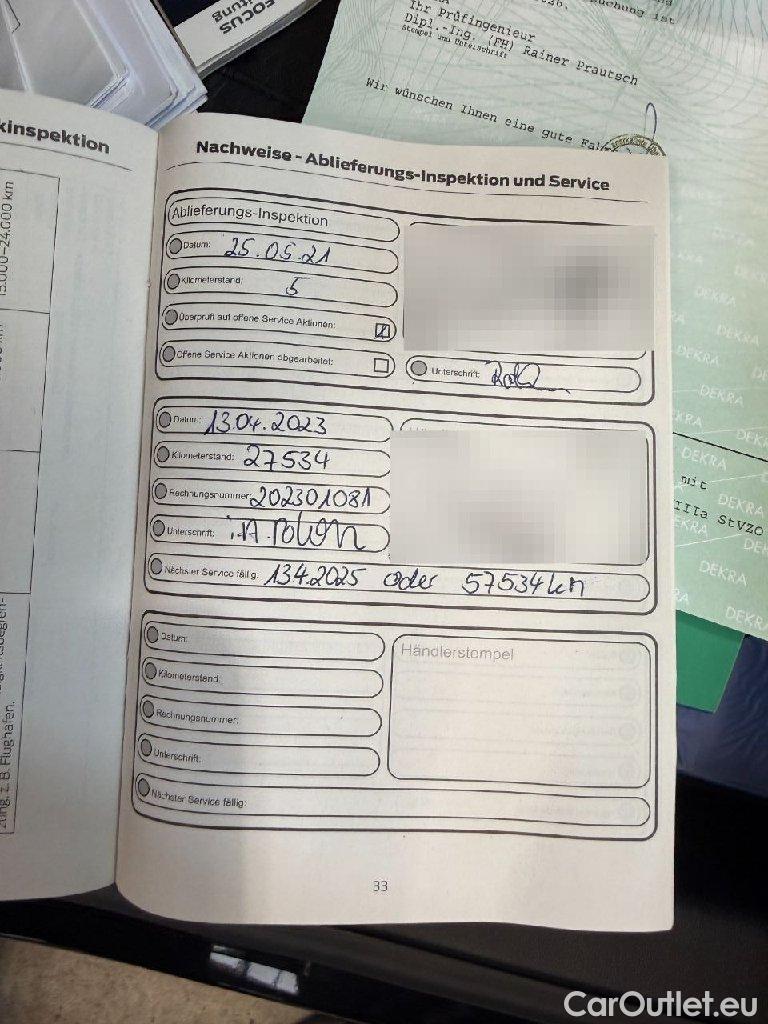 FOCUS
Ihr Prüfingenieur
Dipl.-Ing. (FH) Rainer Prautsch
Stempel und Unterschrift
Wir wünschen Ihnen eine gute
kinspektion
15.000–24.000 km
zung, z. B. Flughafen.
Nachweise - Ablieferungs-Inspektion und Service
Ablieferungs-Inspektion
Datum: 25.05.21
Kilometerstand: 5
Überprüft auf offene Service Aktionen:
Offene Service Aktionen abgearbeitet:
Unterschrift:
Datum: 13.04.2023
Kilometerstand: 27534
Rechnungsnummer: 202301081
Unterschrift: i.A.
Nächster Service fällig: 13.4.2025 oder 57534 km
Datum:
Kilometerstand:
Rechnungsnummer:
Unterschrift:
Nächster Service fällig:
Händlerstempel
33
DEKRA
DEKRA
DEKRA
DEKRA
DEKRA
mit
IIIa StVZO
DEKRA
DEKRA
DEKRA
CarOutlet.eu